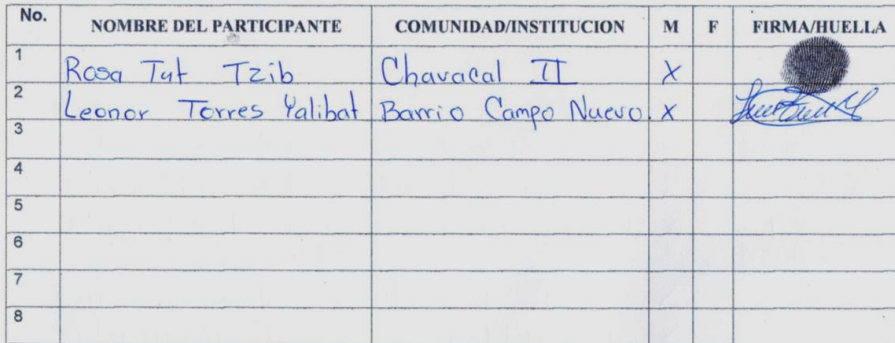 No. NOMBRE DEL PARTICIPANTE COMUNIDAD/INSTITUCION M F FIRMA/HUELLA
1 Rosa Tut Tzib Chavacal II X
2 Leonor Torres Yalibat Barrio Campo Nuevo. x
3
4
5
6
7
8